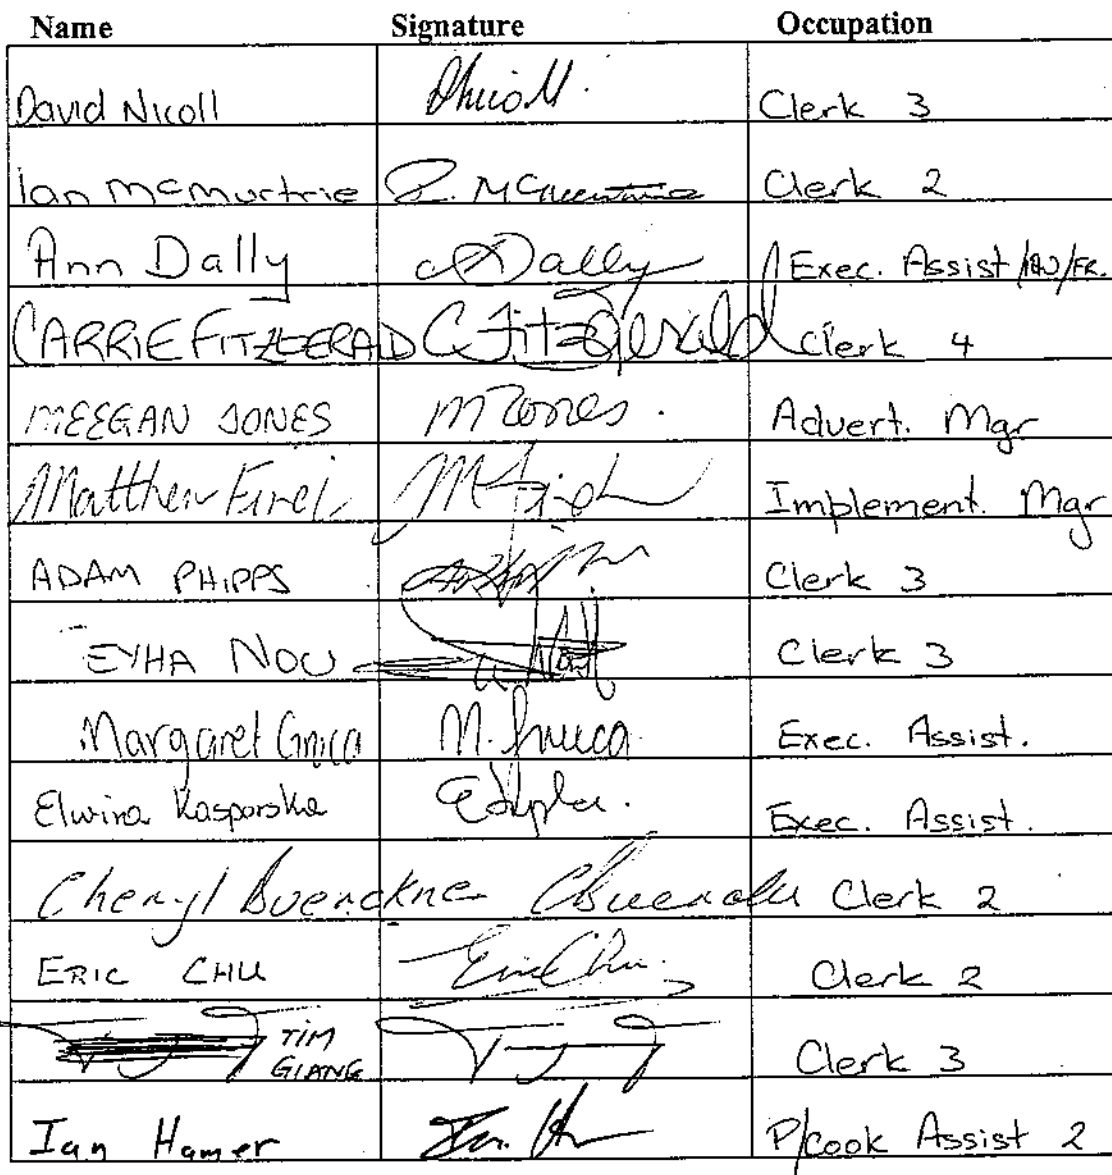 Name Signature Occupation
David Nicoll DNicoll. Clerk 3
Ian McMurtrie I. McMurtrie Clerk 2
Ann Dally ADally Exec. Assist
CARRIE FITZGERALD C Fitzgerald Clerk 4
MEEGAN JONES M Jones. Advert. Mgr
Matthew Implement. Mgr
ADAM PHIPPS Clerk 3
EYHA NOU Clerk 3
Margaret M. Exec. Assist.
Elwira Kasporska Exec. Assist.
Cheryl Clerk 2
ERIC CHU Eric Chu. Clerk 2
TIM
GIANG Clerk 3
Ian Hamer P/Cook Assist 2